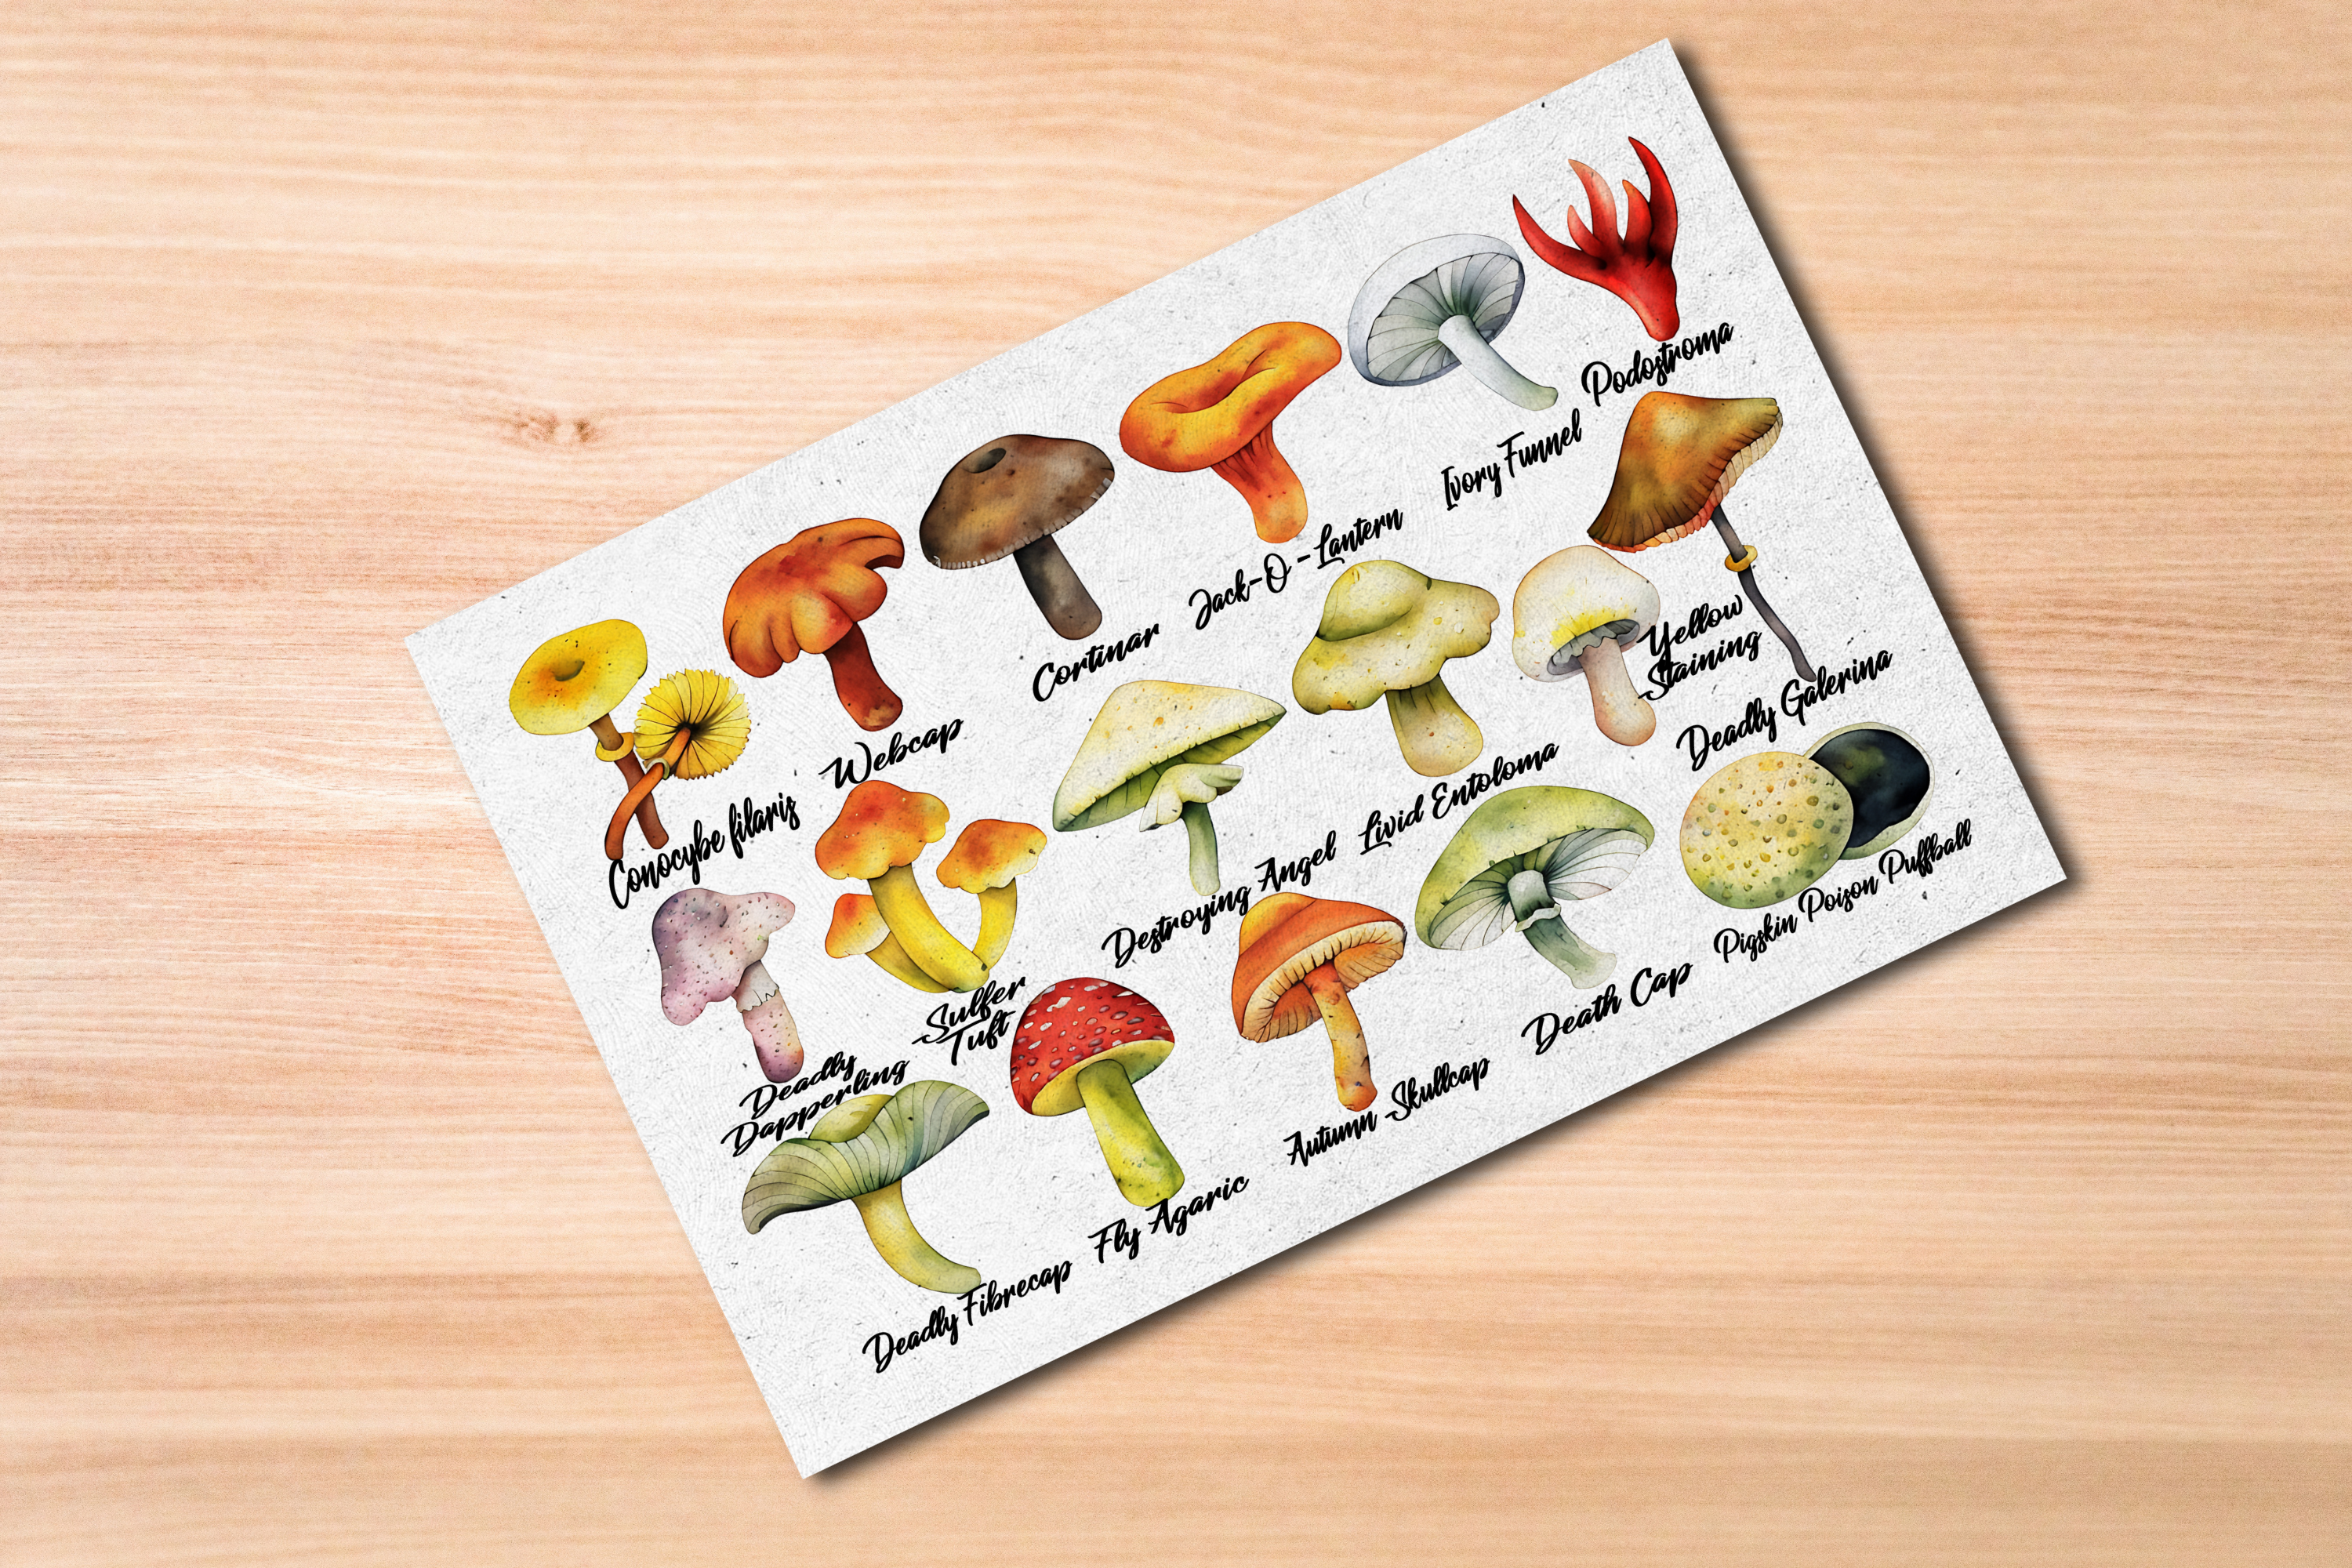 Conocybe filaris
Webcap
Cortinar
Jack-O-Lantern
Ivory Funnel
Podostroma
Deadly
Dapperling
Sulfer
Tuft
Destroying Angel
Livid Entoloma
Yellow
Staining
Deadly Galerina
Deadly Fibrecap
Fly Agaric
Autumn Skullcap
Death Cap
Pigskin Poison Puffball